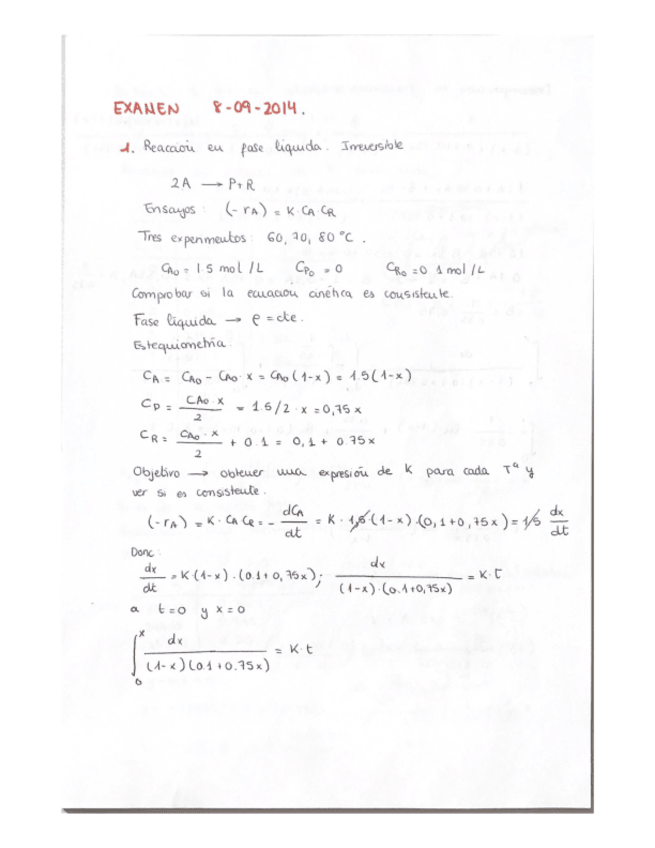 EXAMEN 8-09-2014.
1. Reacción en fase líquida. Irreversible
2A → P+R
Ensayos: (-rA) = K·CA CR
Tres experimentos: 60, 70, 80 °C.
CA0 = 1.5 mol/L CP0 = 0 CR0 = 0'1 mol/L
Comprobar si la ecuación cinética es consistente.
Fase líquida → ρ = cte.
Estequiometría:
CA = CA0 - CA0·x = CA0(1-x) = 1.5(1-x)
CP = CA0·x / 2 = 1.5/2·x = 0,75x
CR = CA0·x / 2 + 0.1 = 0,1 + 0.75x
Objetivo → obtener una expresión de K para cada Tª y
ver si es consistente.
(-rA) = K·CA CR = - dCA/dt = K·1,5·(1-x)·(0,1+0,75x) = 1,5 dx/dt
Donc:
dx/dt = K·(1-x)·(0.1+0,75x); dx / (1-x)·(0.1+0,75x) = K·t
a t=0 y x=0
∫0^x dx / (1-x)(0.1+0.75x) = K·t